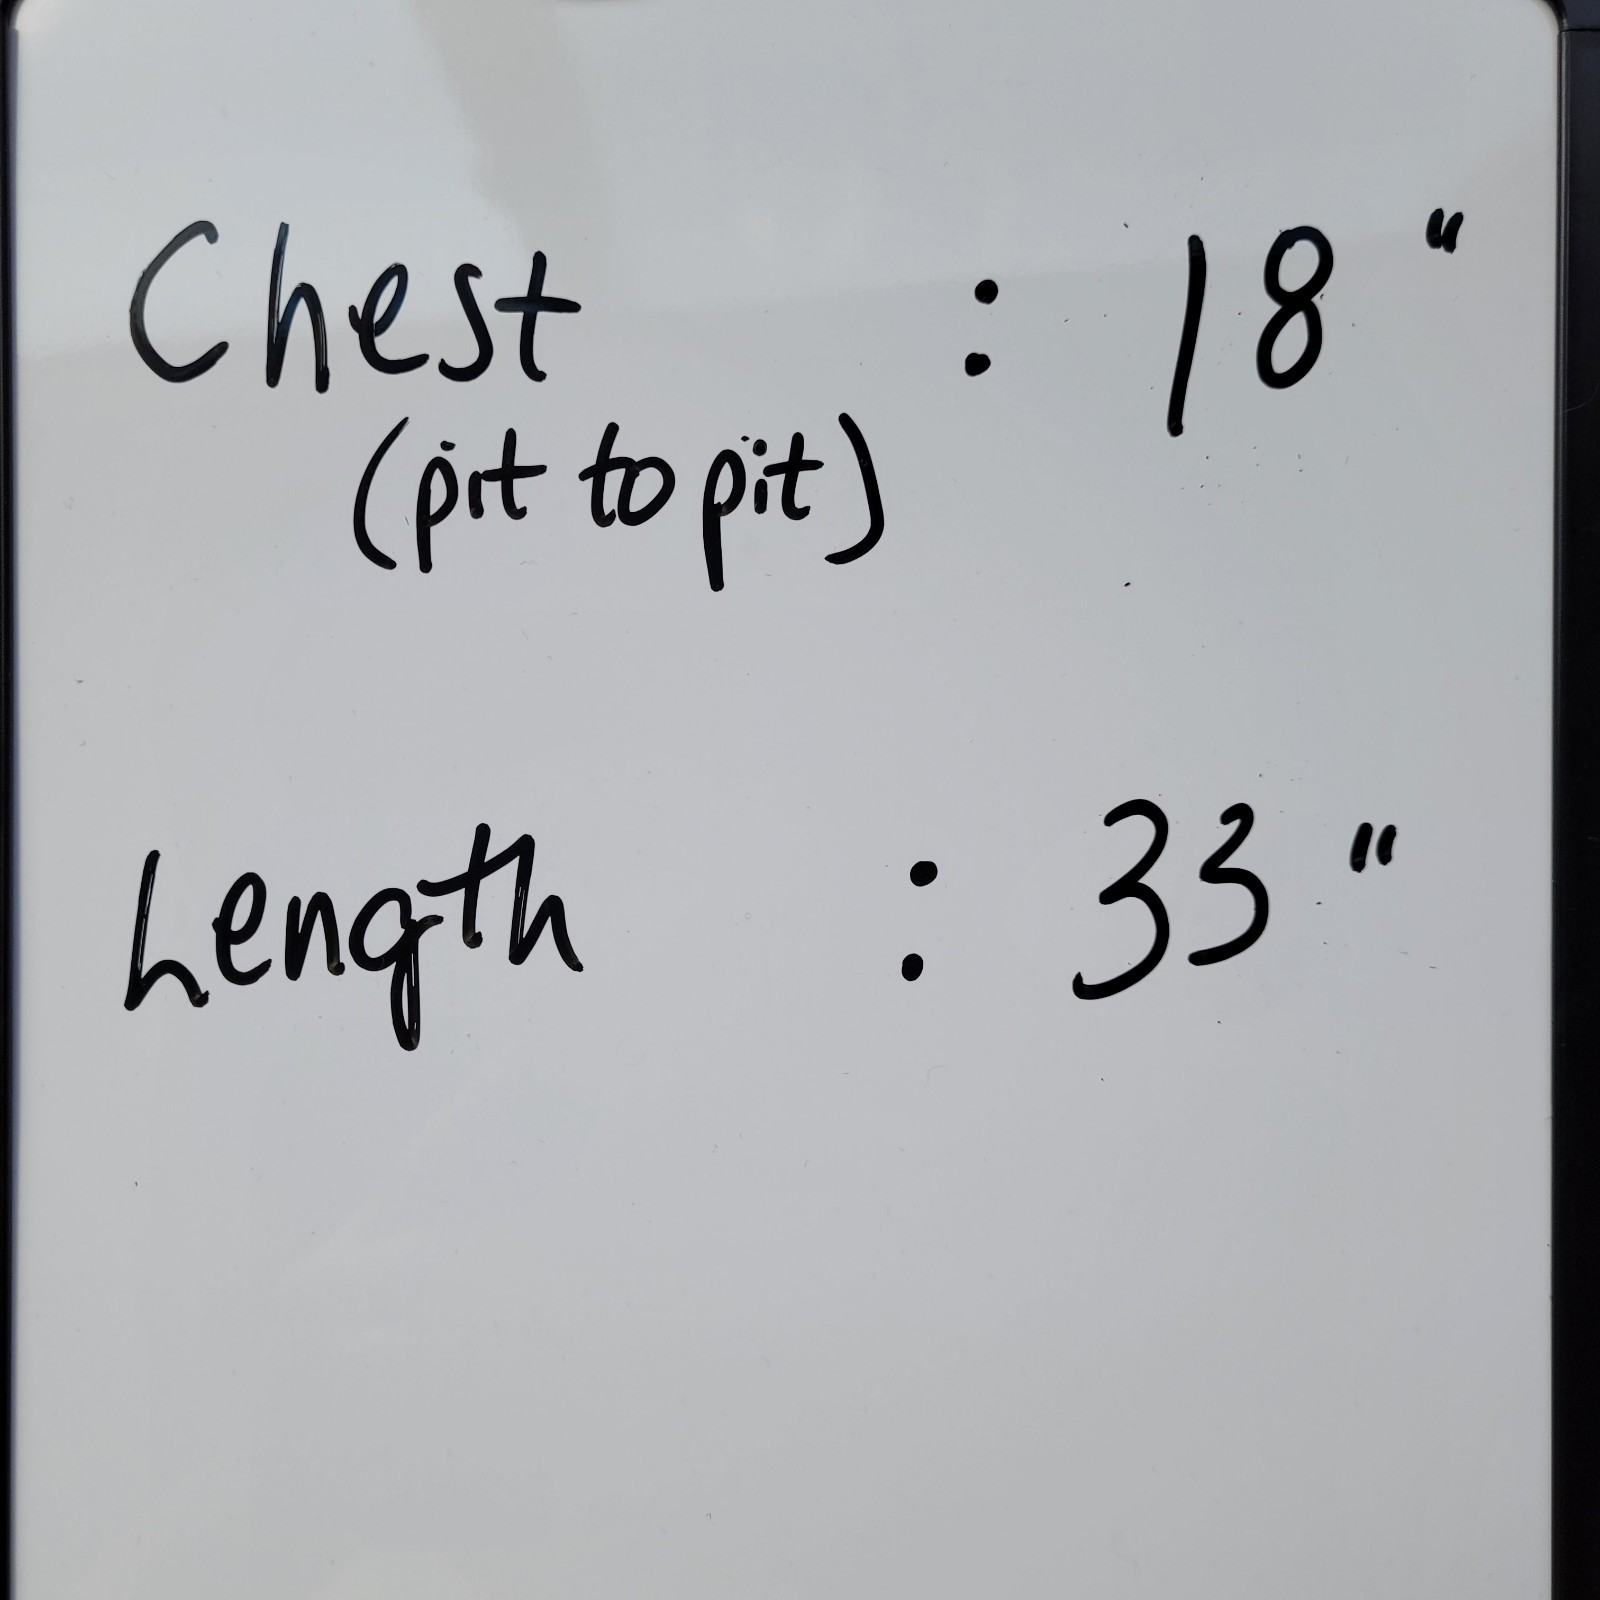 Chest : 18"
(pit to pit)
Length : 33"